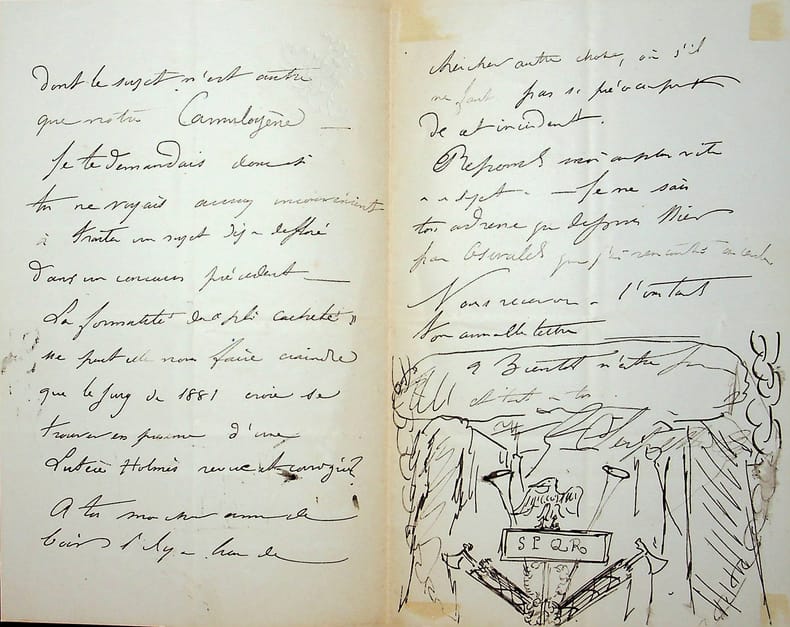 dont le sujet n'est autre
que notre Camulogène —
Je te demandais donc si
tu ne voyais aucun inconvénient
à traiter un sujet déjà defloré
dans un concours précédent —
La formalité du "pli cacheté"
ne peut elle nous faire craindre
que le Jury de 1881 croie se
trouver en présence d'une
Lutèce Holmès revue et corrigée?
A toi mon cher ami de
voir s'il y a lieu de
chercher autre chose, ou s'il
ne faut pas se préoccuper
de cet incident.
Reponds moi au plus vite
à ce sujet — Je ne sais
ton adresse que depuis hier
par que j'ai rencontré
Nous recevons à l'instant
ton aimable lettre
à Bientôt
et tout à toi
S P Q R